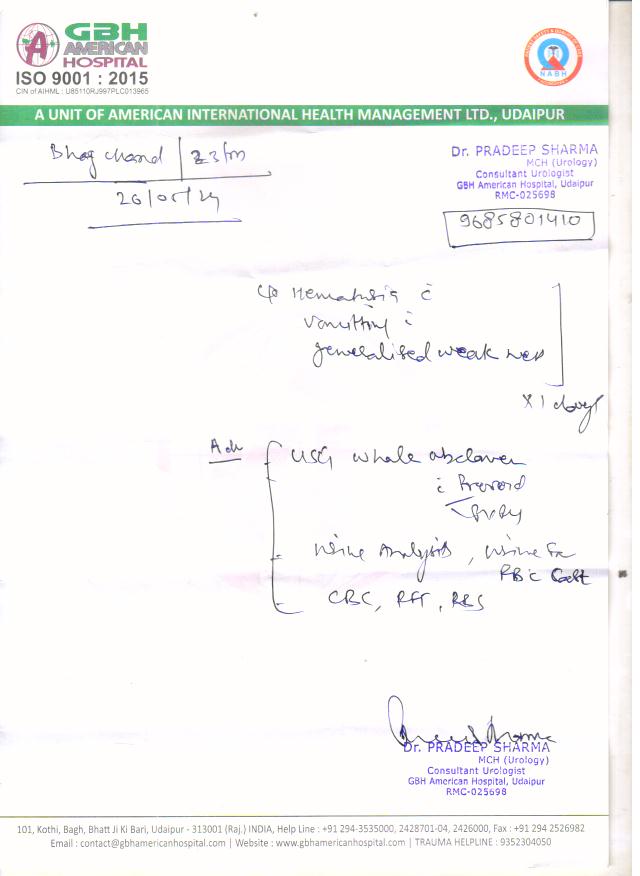 GBH
AMERICAN
HOSPITAL
ISO 9001 : 2015
CIN of AIHML : U85110RJ997PLC013965
NABH
A UNIT OF AMERICAN INTERNATIONAL HEALTH MANAGEMENT LTD., UDAIPUR
Bhag chand / 23/m
26/05/24
Dr. PRADEEP SHARMA
MCH (Urology)
Consultant Urologist
GBH American Hospital, Udaipur
RMC-025698
9685801410
Hematuria c̄
vomitting c̄
generalised weakness
x 1 days
Adv
USG whole abdomen
c̄ Prevoid
Urine Analysis, Urine for
RBC Cast
CBC, RFT, RBS
Dr. PRADEEP SHARMA
MCH (Urology)
Consultant Urologist
GBH American Hospital, Udaipur
RMC-025698
101, Kothi, Bagh, Bhatt Ji Ki Bari, Udaipur - 313001 (Raj.) INDIA, Help Line : +91 294-3535000, 2428701-04, 2426000, Fax : +91 294 2526982
Email : contact@gbhamericanhospital.com | Website : www.gbhamericanhospital.com | TRAUMA HELPLINE : 9352304050